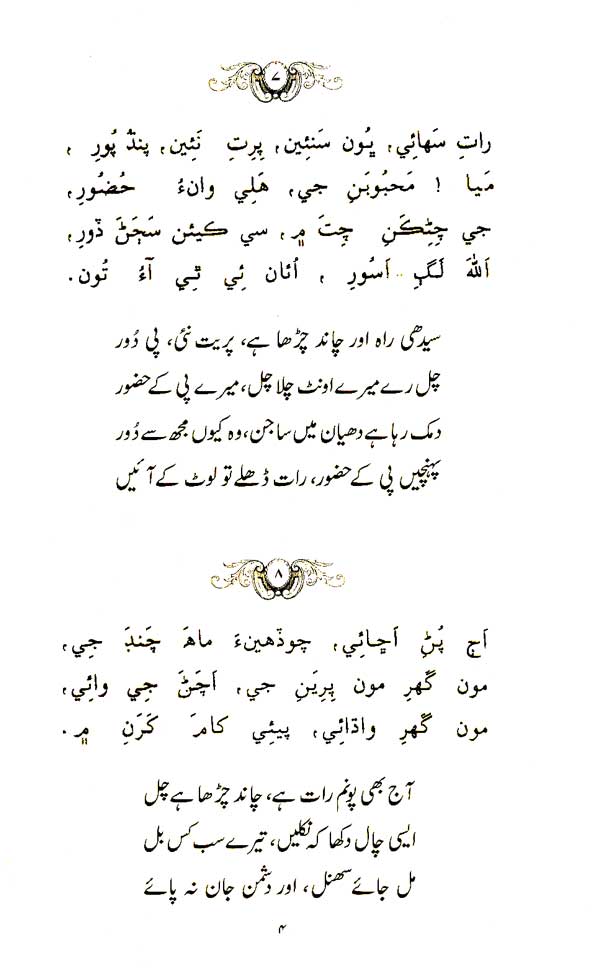 ۷
راتِ سَھائِي، ڀُون سَنئِين، پِرِتِ نَئِين، پنڌُ پُورِ،
مَيا ! مَحبُوبَنِ جي، هَلِي وانءُ حُضُورِ،
جي چِٽِڪَنِ چِتَ ۾، سي ڪيئن سَڄَڻَ ڏورِ،
اَللهَ لَڳِ اَسُورِ، اُتان ئِي ٿِي آءُ تُون.
سیدھی راہ اور چاند چڑھا ہے، پریت نئی، پی دُور
چل رے میرے اونٹ چلا چل، میرے پی کے حضور
دمک رہا ہے دھیان میں ساجن، وہ کیوں مجھ سے دُور
پہنچیں پی کے حضور، رات ڈھلے تو لوٹ کے آئیں
۸
اَڄ پُڻِ اَڇائِي، چوڏهينءَ ماهَ چَنڊَ جي،
مون گَهرِ مون پِرِيَنِ جي، اَچَڻَ جِي وائِي،
مون گَهرِ واڌائِي، پيئِي ڪامَ ڪَرَنِ ۾.
آج بھی پونم رات ہے، چاند چڑھا ہے چل
ایسی چال دکھا کہ نکلیں، تیرے سب کس بل
مل جائے سھنل، اور دشمن جان نہ پائے
۴